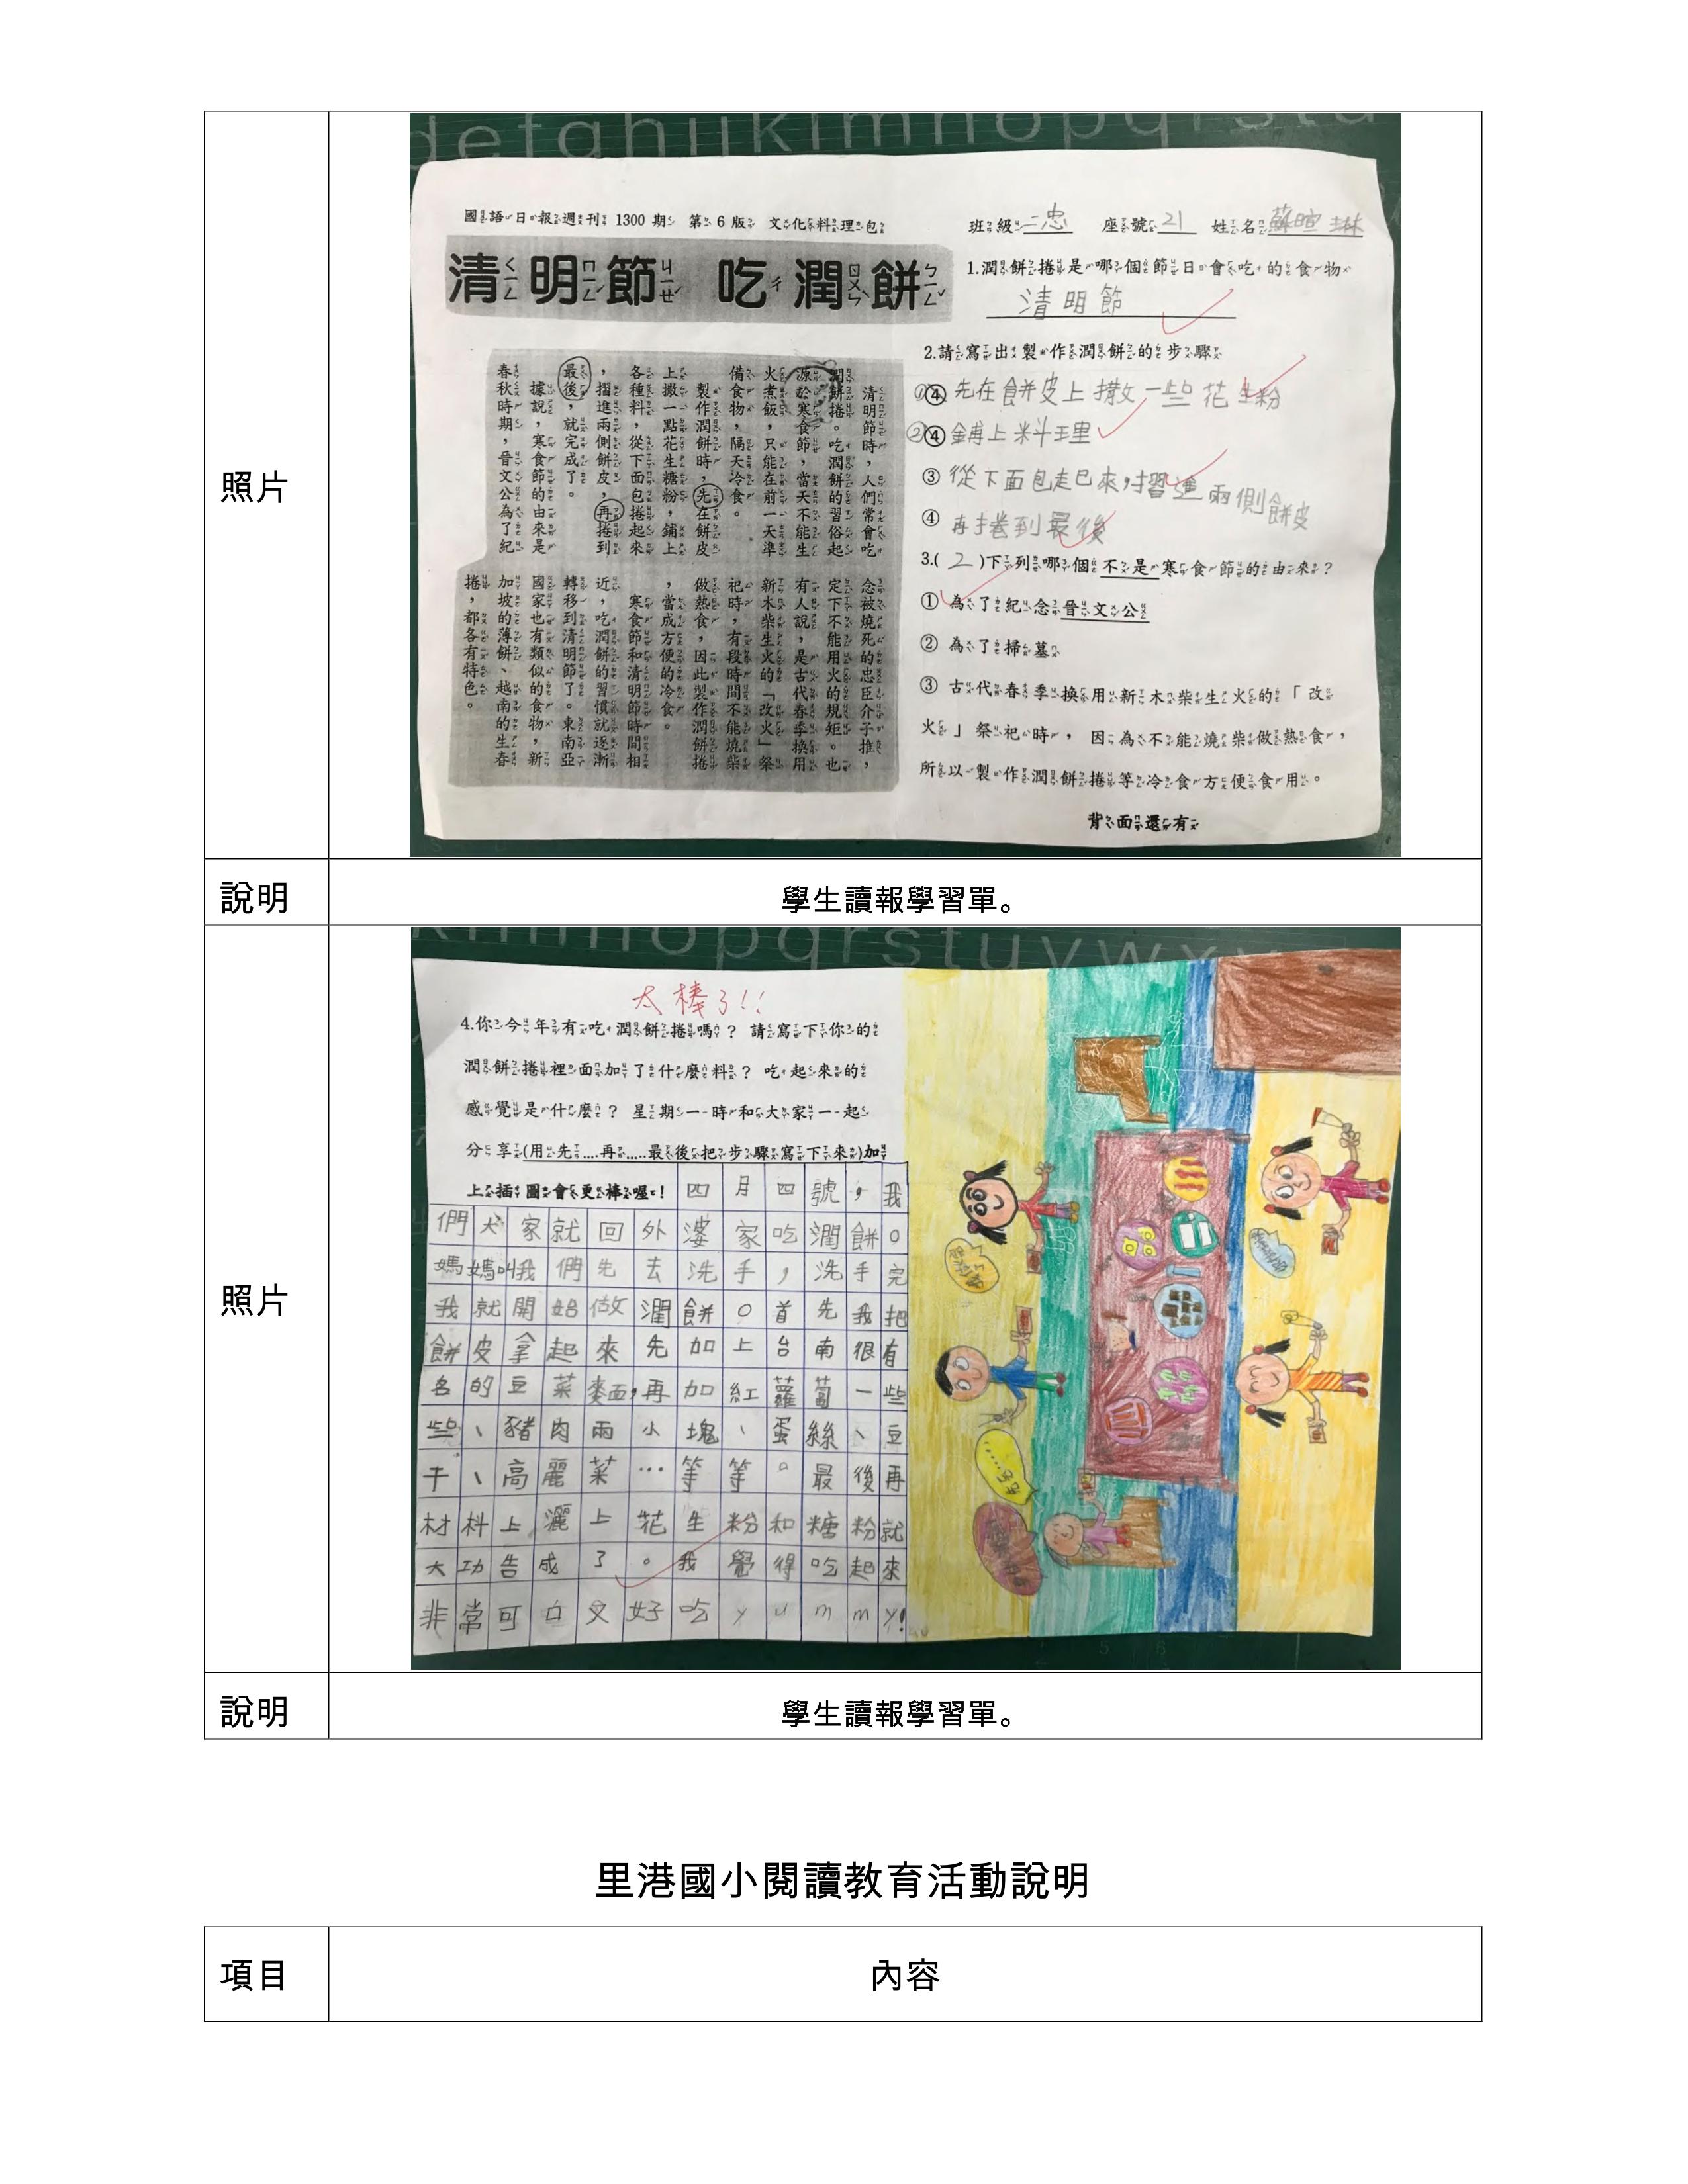 照片
defghijklmnopqrstu
國語日報週刊 1300 期 第 6 版 文化料理包
清明節 吃潤餅
清明節時，人們常會吃
潤餅捲。吃潤餅的習俗起
源於寒食節，當天不能生
火煮飯，只能在前一天準
備食物，隔天冷食。
製作潤餅時，先在餅皮
上撒一點花生糖粉，鋪上
各種料，從下面包捲起來
，摺進兩側餅皮，再捲到
最後，就完成了。
據說，寒食節的由來是
春秋時期，晉文公為了紀
念被燒死的忠臣介子推，
定下不能用火的規矩。也
有人說，是古代春季換用
新木柴生火的「改火」祭
祀時，有段時間不能燒柴
做熱食，因此製作潤餅捲
，當成方便的冷食。
寒食節和清明節時間相
近，吃潤餅的習慣就逐漸
轉移到清明節了。東南亞
國家也有類似的食物，新
加坡的薄餅、越南的生春
捲，都各有特色。
班級 二忠 座號 21 姓名 蘇暄琳
1.潤餅捲是哪個節日會吃的食物
清明節
2.請寫出製作潤餅的步驟
① 先在餅皮上撒一些花生粉
② 鋪上料理
③ 從下面包起來，摺進兩側餅皮
④ 再捲到最後
3.( 2 )下列哪個不是寒食節的由來？
① 為了紀念晉文公
② 為了掃墓
③ 古代春季換用新木柴生火的「改
火」祭祀時，因為不能燒柴做熱食，
所以製作潤餅捲等冷食方便食用。
背面還有
說明
學生讀報學習單。
照片
klmnopqrstuvwx
太棒了!!
4.你今年有吃潤餅捲嗎？請寫下你的
潤餅捲裡面加了什麼料？吃起來的
感覺是什麼？星期一一時和大家一一起
分享(用先....再.....最後把步驟寫下來)加
上插圖會更棒喔！四月四號，我
們大家就回外婆家吃潤餅。
媽媽叫我們先去洗手，洗手完
我就開始做潤餅。首先我把
餅皮拿起來先加上台南很有
名的豆菜麵，再加紅蘿蔔一些
些、豬肉兩小塊、蛋絲、豆
干、高麗菜…等等。最後再
材料上灑上花生粉和糖粉就
大功告成了。我覺得吃起來
非常可口又好吃yummy!
說明
學生讀報學習單。
里港國小閱讀教育活動說明
項目
內容